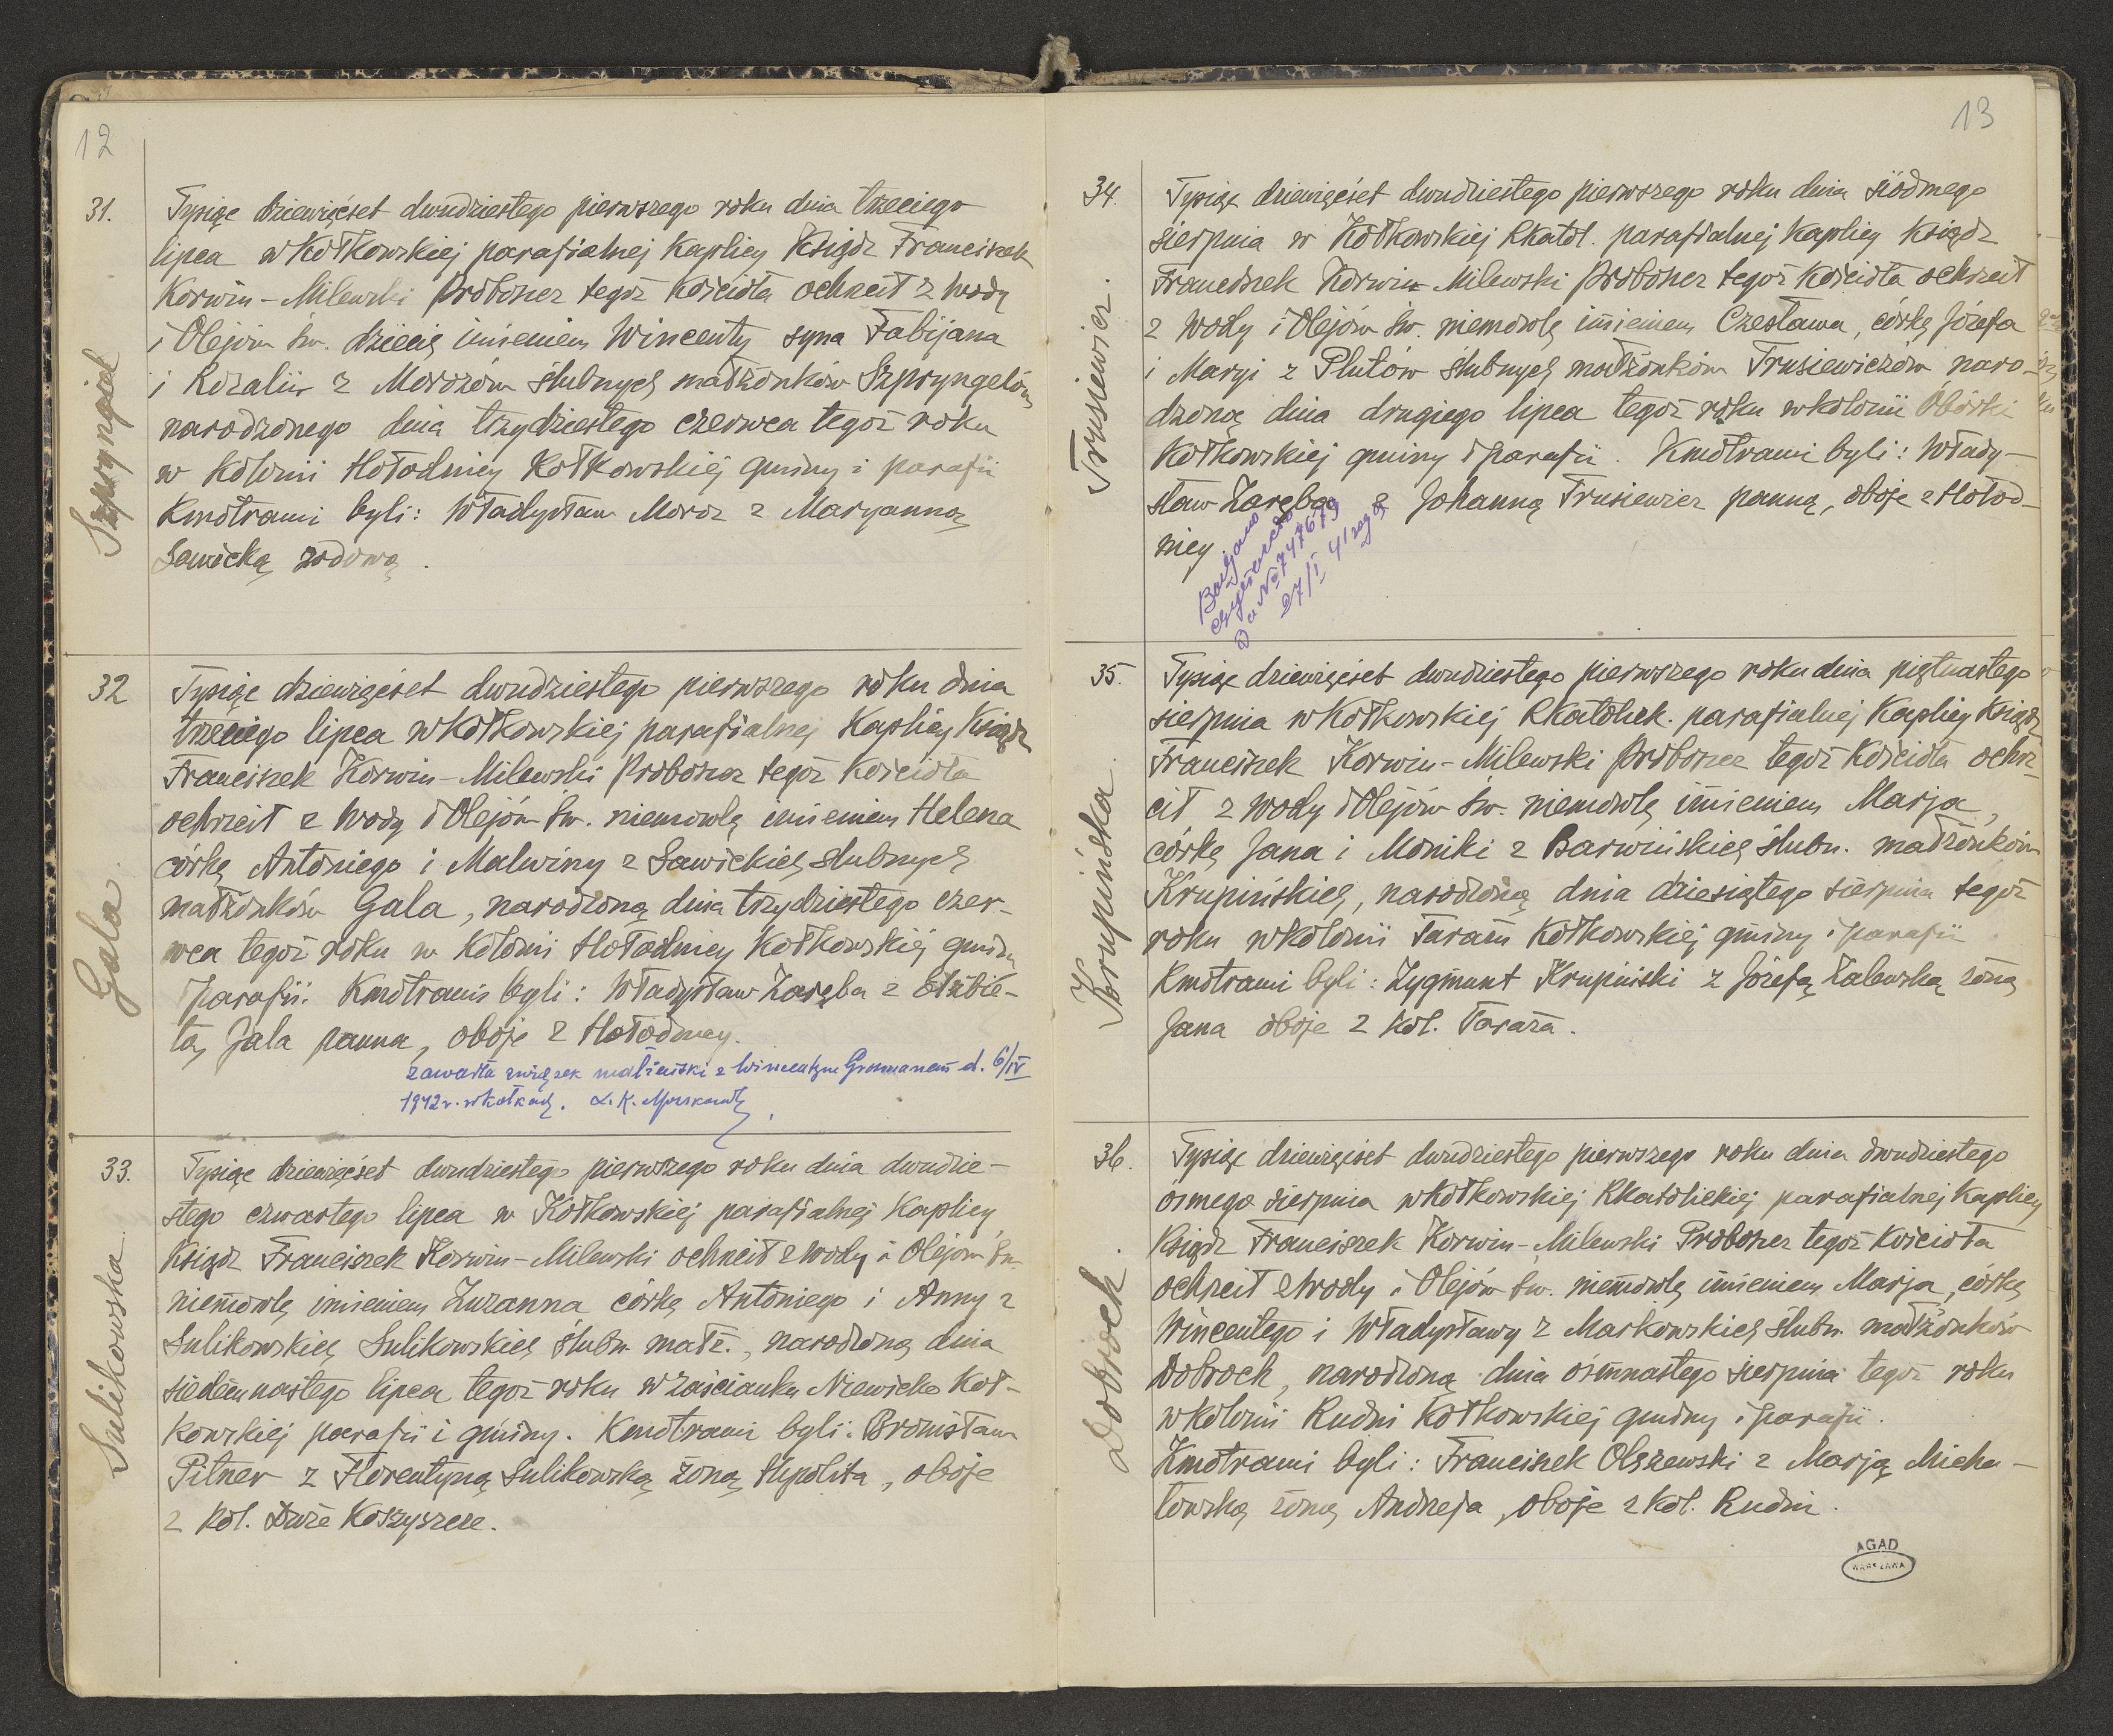 12
31.
Szpryngel
Tysiąc dziewięćset dwudziestego pierwszego roku dnia trzeciego
lipca w Kołkowskiej parafialnej Kaplicy Ksiądz Franciszek
Korwin-Milewski Proboszcz tegoż Kościoła ochrzcił z wody
i Olejów św. dziecię imieniem Wincenty syna Fabijana
i Rozalii z Morozów ślubnych małżonków Szpryngelów
narodzonego dnia trzydziestego czerwca tegoż roku
w Kolonii Hołodnicy Kołkowskiej gminy i parafii
Kmotrami byli: Władysław Moroz z Maryanną
Sawicką wdową.
32
Gala.
Tysiąc dziewięćset dwudziestego pierwszego roku dnia
trzeciego lipca w Kołkowskiej parafialnej Kaplicy Ksiądz
Franciszek Korwin-Milewski Proboszcz tegoż Kościoła
ochrzcił z wody i Olejów św. niemowlę imieniem Helena
córkę Antoniego i Malwiny z Sawickich ślubnych
małżonków Gala, narodzoną dnia trzydziestego czer-
wca tegoż roku w Kolonii Hołodnicy Kołkowskiej gminy
parafii. Kmotrami byli: Władysław Zaręba z Elżbie-
tą Gala panna, oboje z Hołodnicy.
zawarła związek małżeński z Wincentym Grosmanem d. 6/IV
1942 r. w Kołkach.
33.
Sulikowska
Tysiąc dziewięćset dwudziestego pierwszego roku dnia dwudzie-
stego czwartego lipca w Kołkowskiej parafialnej Kaplicy
Ksiądz Franciszek Korwin-Milewski ochrzcił z wody i Olejów św.
niemowlę imieniem Zuzanna córkę Antoniego i Anny z
Sulikowskich Sulikowskich ślubn. małż., narodzoną dnia
siedemnastego lipca tegoż roku w zaścianku Niewicko Koł-
kowskiej parafii i gminy. Kmotrami byli: Bronisław
Pitner z Florentyną Sulikowską żoną Hypolita, oboje
z Kol. Duże Koszyszcze.
13
34.
Trusiewicz.
Tysiąc dziewięćset dwudziestego pierwszego roku dnia siódmego
sierpnia w Kołkowskiej Rkatol. parafialnej Kaplicy Ksiądz
Franciszek Korwin-Milewski Proboszcz tegoż Kościoła ochrzcił
z wody i Olejów św. niemowlę imieniem Czesława, córkę Józefa
i Maryi z Plutów ślubnych małżonków Trusiewiczów naro-
dzoną dnia drugiego lipca tegoż roku w kolonii Obórki
Kołkowskiej gminy i parafii. Kmotrami byli: Włady-
sław Zaręba z Johanną Trusiewicz panną, oboje z Hołod-
nicy
27/I 41
35.
Krupińska.
Tysiąc dziewięćset dwudziestego pierwszego roku dnia piętnastego
sierpnia w Kołkowskiej Rkatolick. parafialnej Kaplicy Ksiądz
Franciszek Korwin-Milewski Proboszcz tegoż Kościoła ochrz-
cił z wody i Olejów św. niemowlę imieniem Marja,
córkę Jana i Moniki z Barwińskich ślubn. małżonków
Krupińskich, narodzoną dnia dziesiątego sierpnia tegoż
roku w kolonii Taraż Kołkowskiej gminy i parafii.
Kmotrami byli: Zygmunt Krupiński z Józefą Zalewską żoną
Jana oboje z kol. Taraża.
36.
Dobroch.
Tysiąc dziewięćset dwudziestego pierwszego roku dnia dwudziestego
ósmego sierpnia w Kołkowskiej Rkatolickiej parafialnej Kaplicy
Ksiądz Franciszek Korwin-Milewski Proboszcz tegoż Kościoła
ochrzcił z wody i Olejów św. niemowlę imieniem Marja, córkę
Wincentego i Władysławy z Markowskich ślubn. małżonków
Dobroch, narodzoną dnia ośmnastego sierpnia tegoż roku
w kolonii Rudni Kołkowskiej gminy i parafii.
Kmotrami byli: Franciszek Olszewski z Marją Micha-
łowską żoną Andrzeja, oboje z kol. Rudni.
AGAD
WARSZAWA